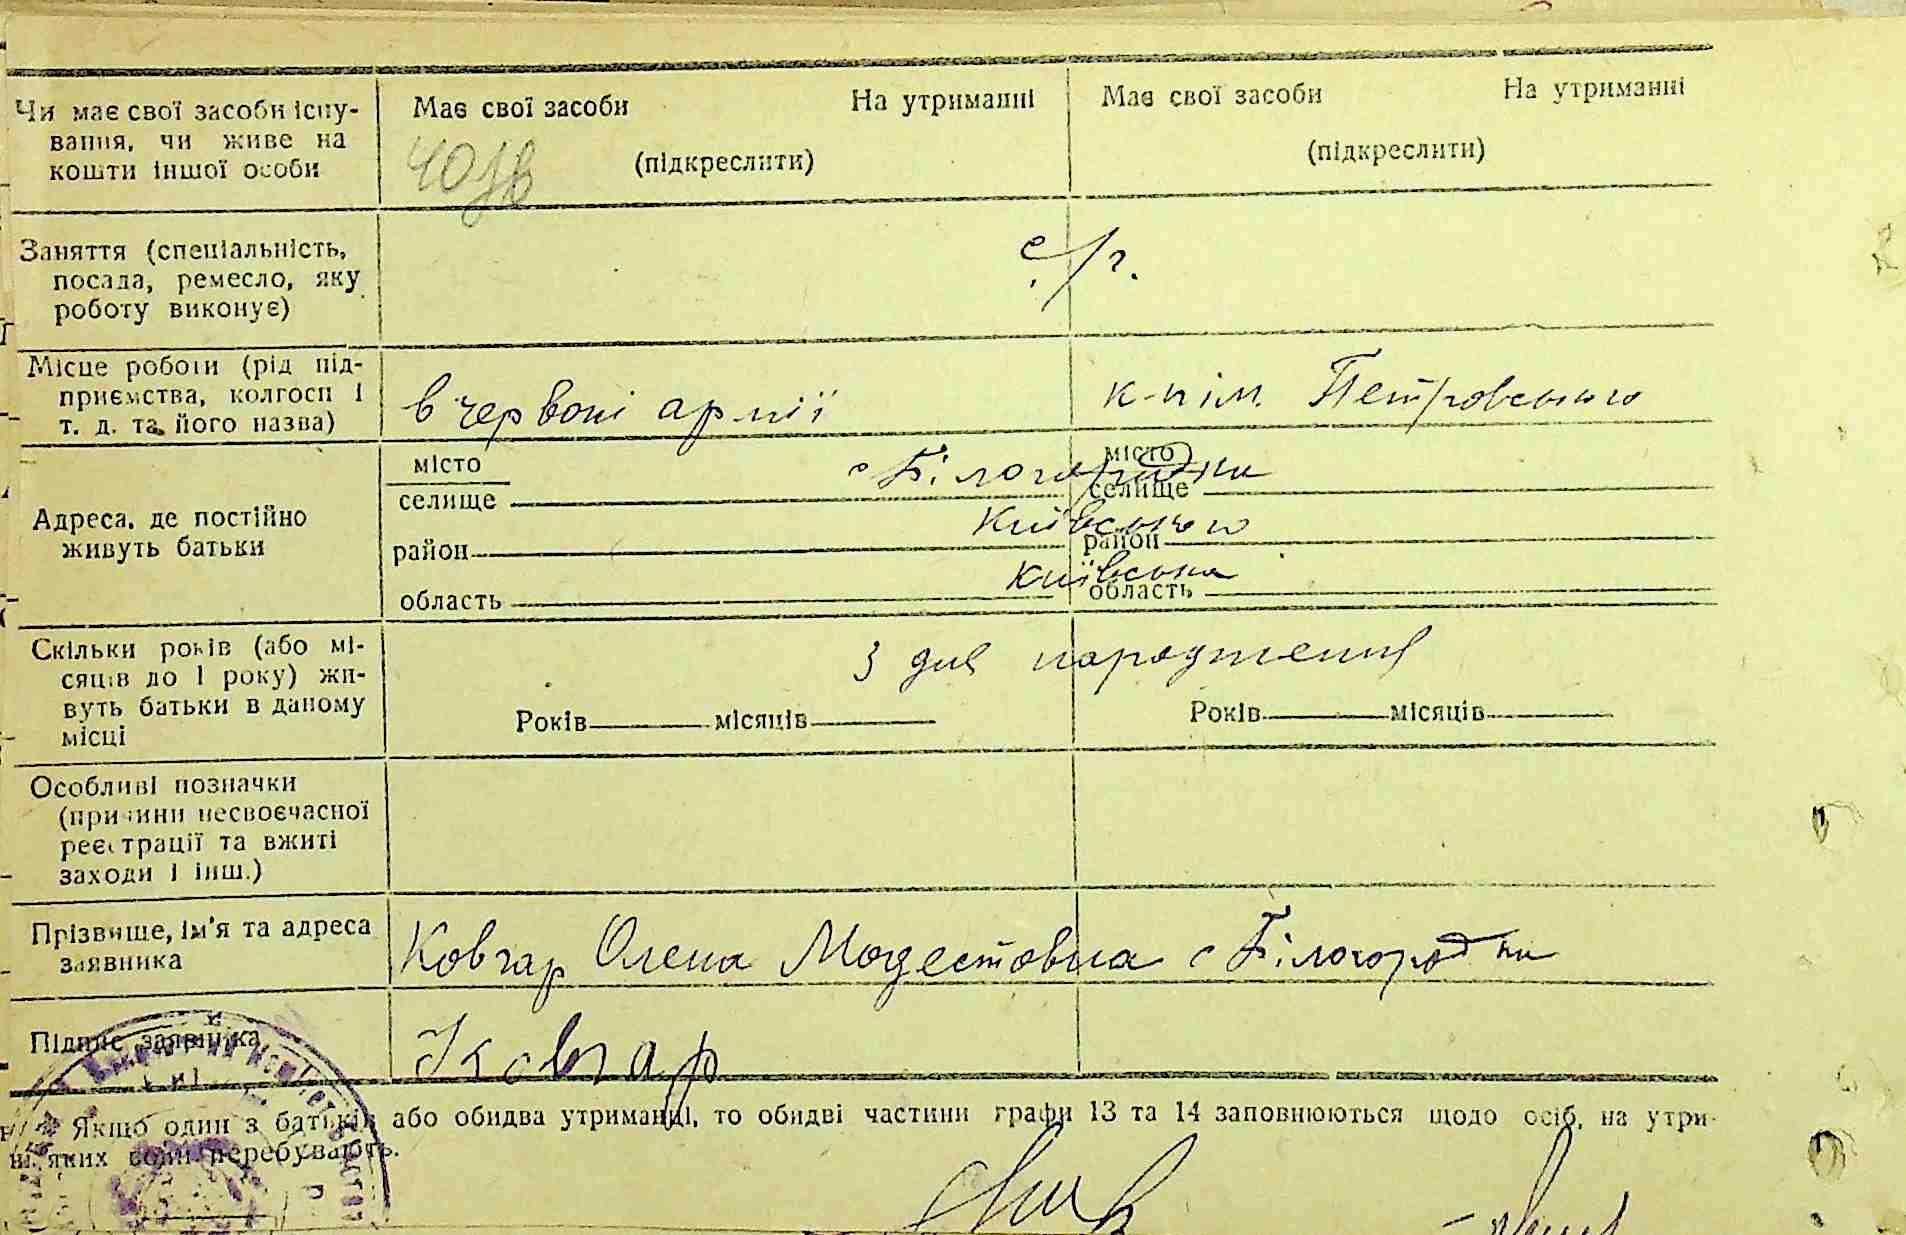 Чи має свої засоби існу-
вання, чи живе на
кошти іншої особи
Має свої засоби На утриманні
(підкреслити)
Має свої засоби На утриманні
(підкреслити)
Заняття (спеціальність,
посада, ремесло, яку
роботу виконує)
с/г.
Місце роботи (рід під-
приємства, колгосп і
т. д. та його назва)
в червоні армії
к-п ім. Петровського
Адреса, де постійно
живуть батьки
місто
селище
район
область
с Білогородки
Київського
Київська
місто
селище
район
область
Скільки років (або мі-
сяців до 1 року) жи-
вуть батьки в даному
місці
З дня народження
Років місяців
Років місяців
Особливі позначки
(причини несвоєчасної
реєстрації та вжиті
заходи і інш.)
Прізвище, ім'я та адреса
заявника
Ковгар Олена Модестовна с Білогородки
Підпис заявника
Ковгар
Якщо один з батьків або обидва утриманці, то обидві частини графи 13 та 14 заповнюються щодо осіб, на утри-
ні яких вони перебувають.